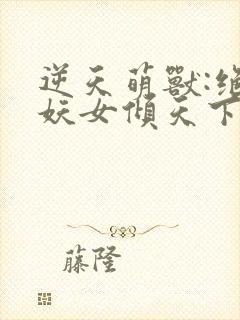 逆天萌獸:絕
妖女傾天下
藤隆